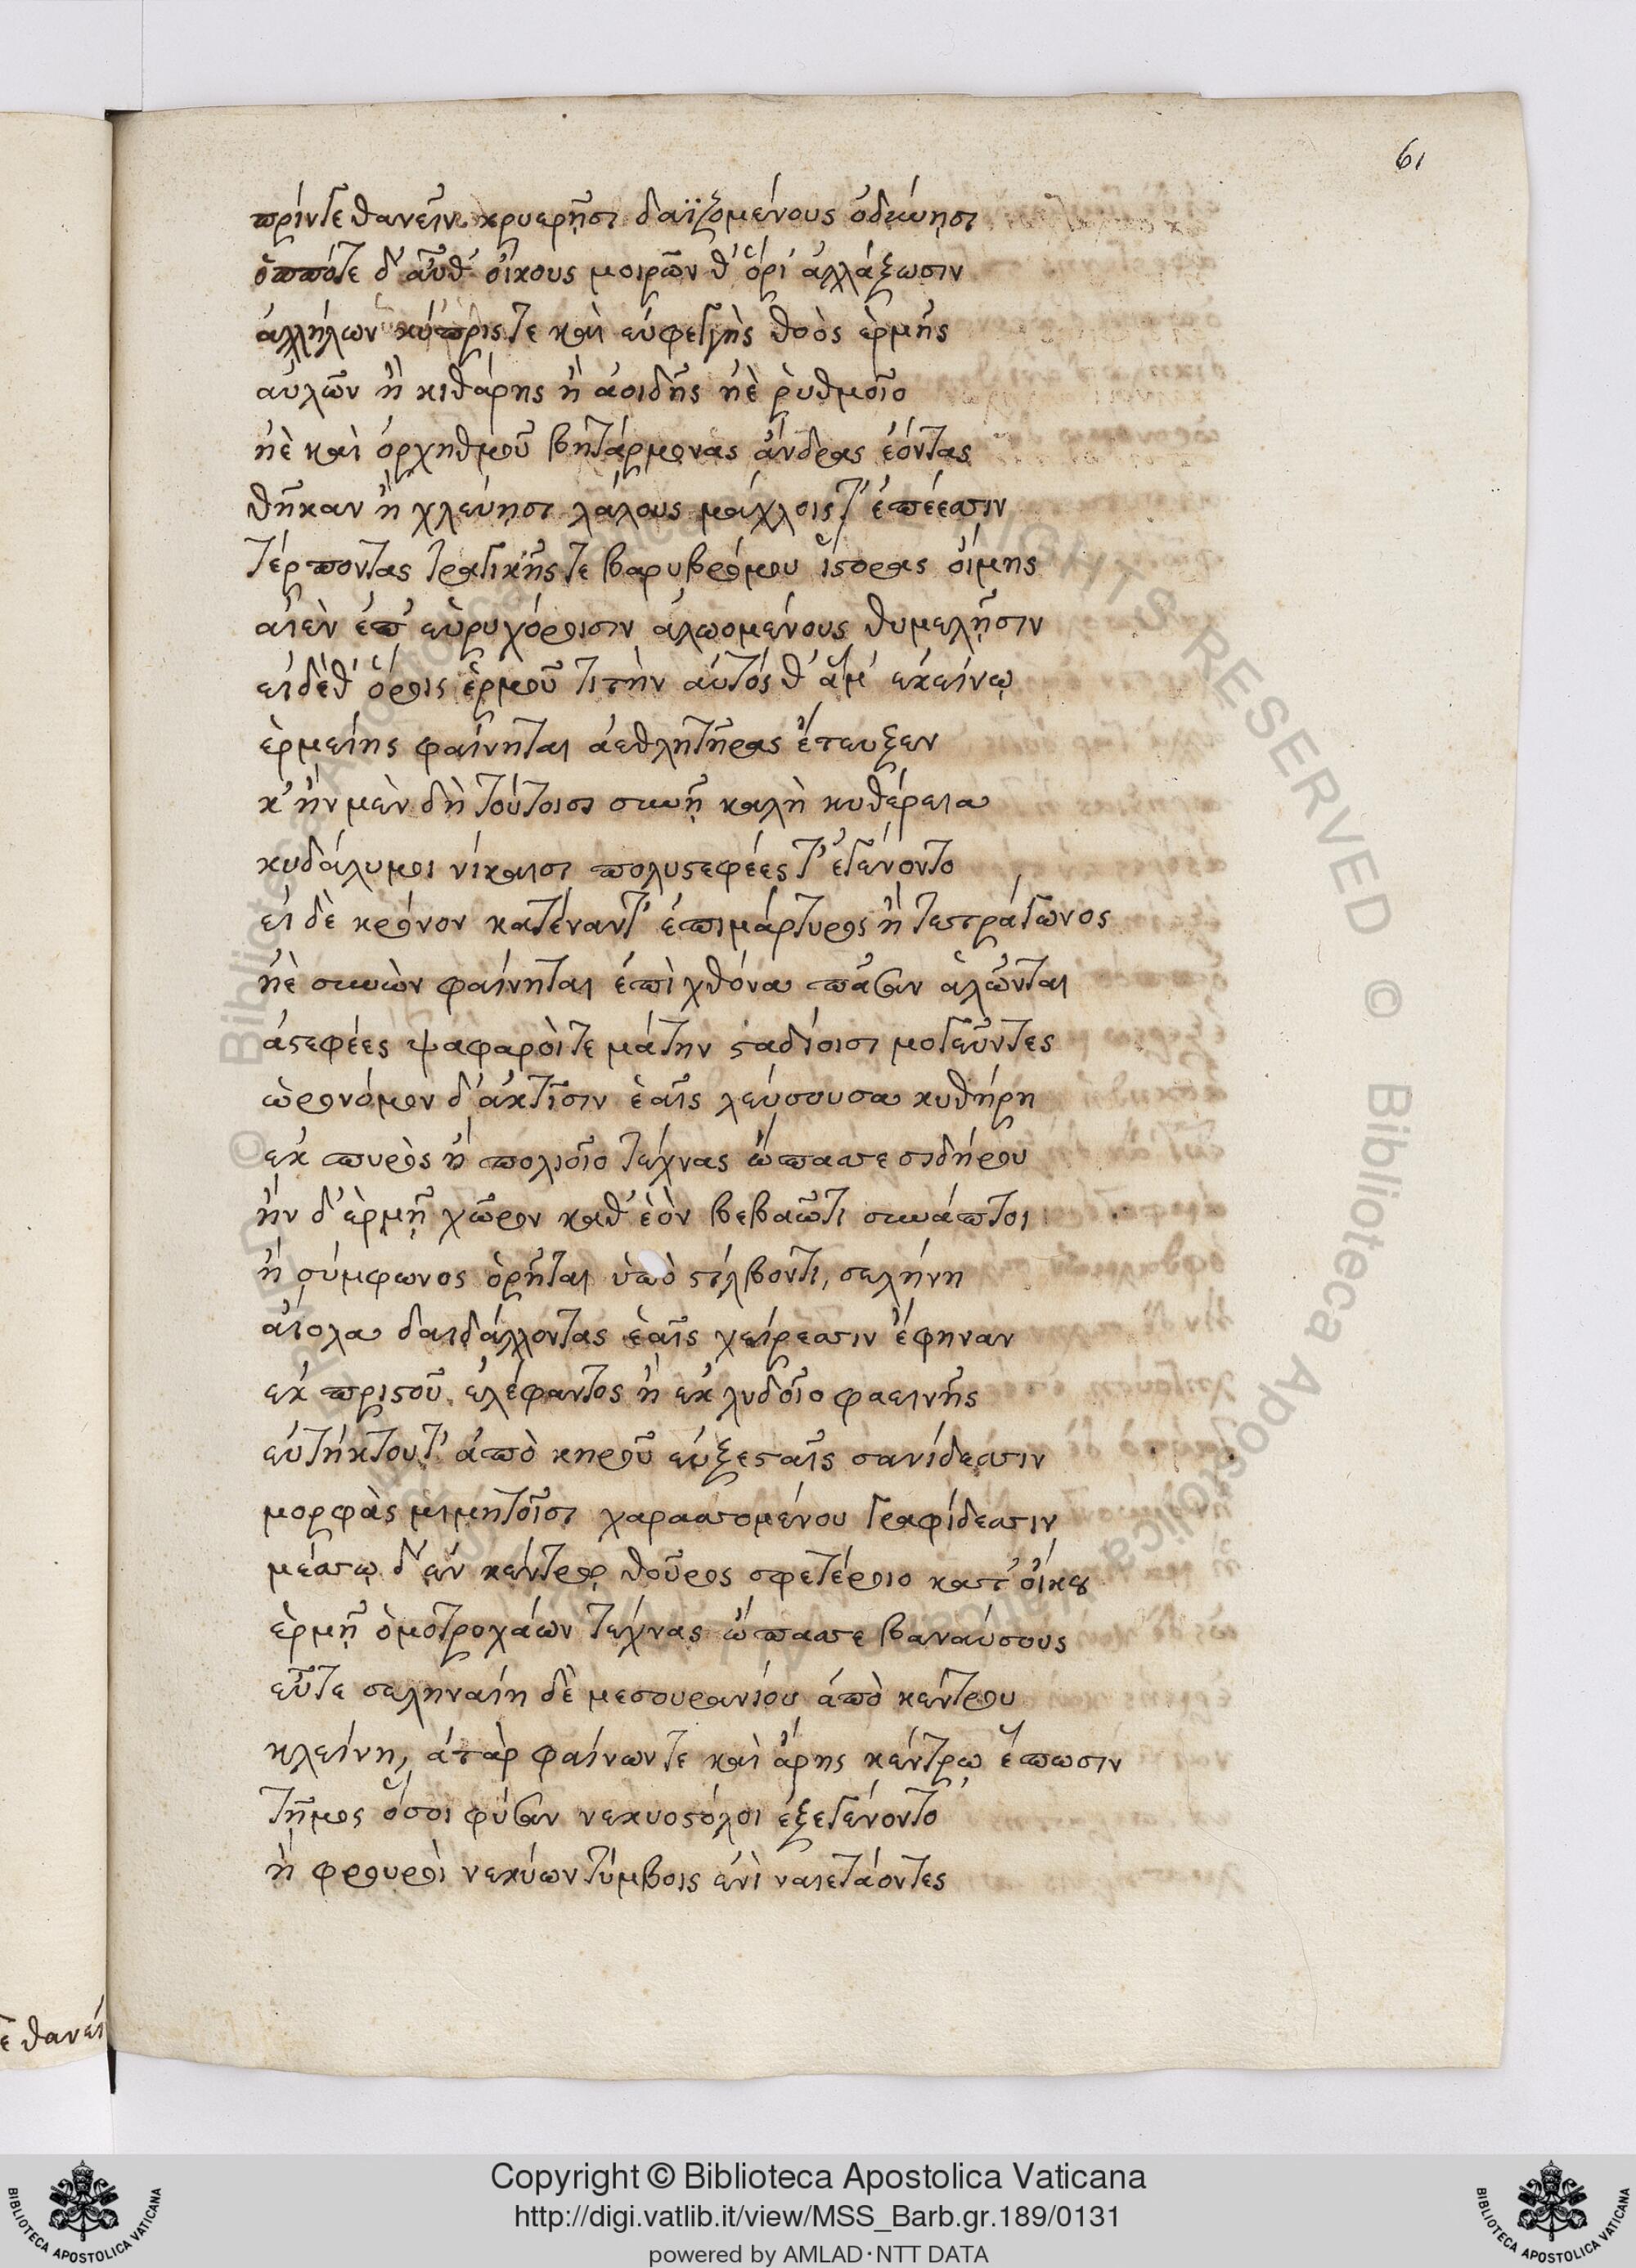 61
πρίντε θανεῖν κρυερῇσι δαϊζομένους ὀδύνῃσι
ὁππότε δ' αὖθ' οἴκους μοιρῶν θ' ὅρι' ἀλλάξωσιν
ἀλλήλων κύπρις τε καὶ εὐφεγγὴς θοὸς ἑρμῆς
αὐλῶν ἢ κιθάρης ἢ ἀοιδῆς ἠὲ ῥυθμοῖο
ἠὲ καὶ ὀρχηθμοῦ βητάρμονας ἄνδρας ἐόντας
θῆκαν ἢ χλεύῃσι λάλους μάχλοις τ' ἐπέεσσιν
τέρποντας τραγικῆς τε βαρυβρόμου ἵστορας οἴμης
αἰὲν ἐπ' εὐρυχόροισιν ἀλωομένους θυμελῇσιν
εἰ δέ θ' ὅροις ἑρμοῦ τιτὴν αὐτός θ' ἅμ' ἐκείνῳ
ἑρμείης φαίνηται ἀεθλητῆρας ἔτευξεν
κ' ἢν μὲν δὴ τούτοισι συνῇ καλὴ κυθέρεια
κυδάλιμοι νίκαισι πολυστεφέες τ' ἐγένοντο
εἰ δὲ κρόνον κατέναντ' ἐπιμάρτυρος ἢ τετράγωνος
ἠὲ συνὼν φαίνηται ἐπὶ χθόνα πᾶσαν ἀλῶνται
ἀστεφέες ψαφαροί τε μάτην σταδίοισι μογεῦντες
ὡρονόμον δ' ἀκτῖσιν ἑαῖς λεύσουσα κυθήρη
ἐκ πυρὸς ἢ πολιοῖο τέχνας ὤπασσε σιδήρου
ἢν δ' ἑρμῇ χῶρον καθ' ἑὸν βεβαῶτι συνάπτοι
ἢ σύμφωνος ὁρῆται ὑπὸ στίλβοντι, σελήνη
αἰόλα δαιδάλλοντας ἑαῖς χείρεσσιν ἔφηναν
ἐκ πριστοῦ ἐλέφαντος ἢ ἐκ λυδοῖο φαεινῆς
εὐτήκτου τ' ἀπὸ κηροῦ εὐξεσταῖς σανίδεσσιν
μορφὰς μιμητοῖσι χαρασσομένου γραφίδεσσιν
μέσσῳ δ' ἐν κέντρῳ θοῦρος σφετέροιο κατ' οἴκου
ἑρμῇ ὁμοτροχάων τέχνας ὤπασσε βαναύσους
εὖτε σεληναίη δὲ μεσουρανίου ἀπὸ κέντρου
κλείνῃ, ἀτὰρ φαίνων τε καὶ ἄρης κέντρῳ ἕπωσιν
τῆμος ὅσοι φύσαν νεκυοστόλοι ἐξεγένοντο
ἢ φρουροὶ νεκύων τύμβοις ἐνὶ ναιετάοντες
ε θανεῖ
Copyright © Biblioteca Apostolica Vaticana
http://digi.vatlib.it/view/MSS_Barb.gr.189/0131
powered by AMLAD・NTT DATA